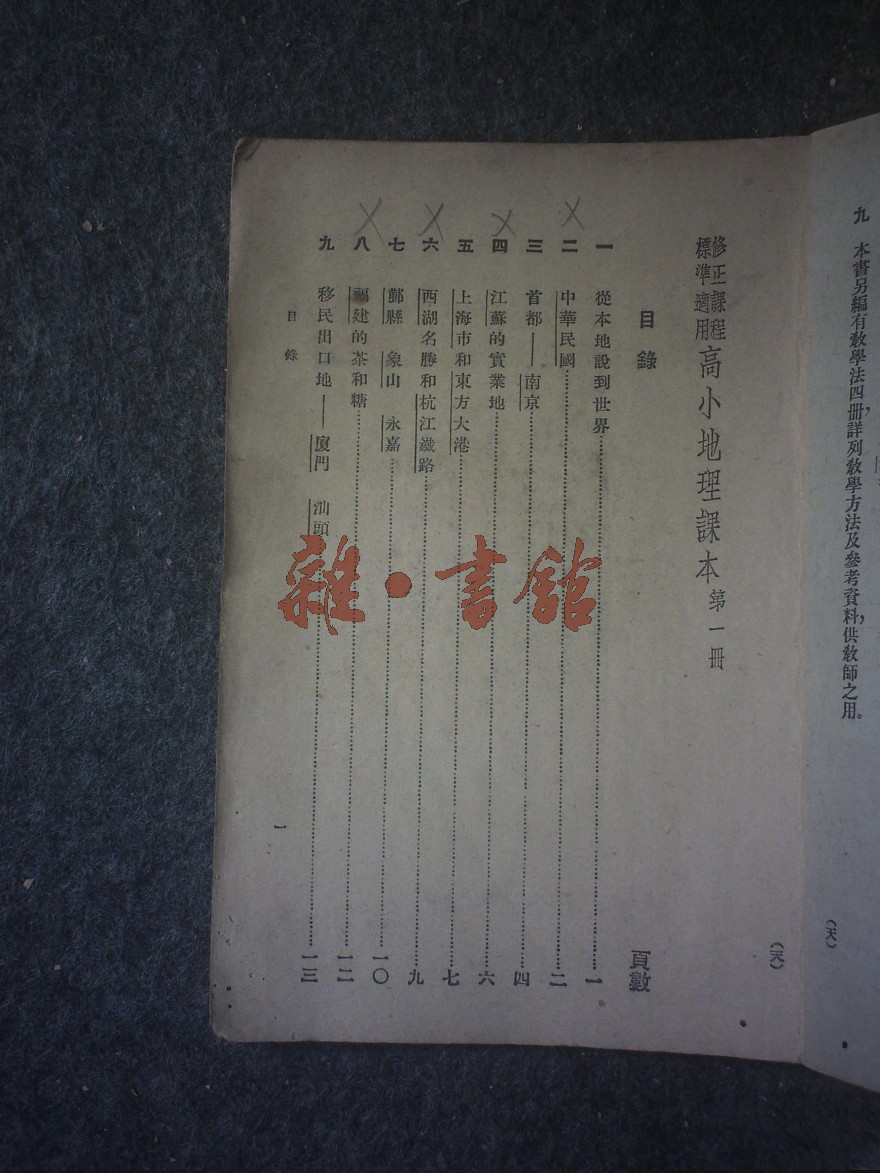 九　本書另編有教學法四冊，詳列教學方法及參考資料，供教師之用。
（天）
修正課程標準適用高小地理課本第一冊
（天）
目錄　頁數
一　從本地說到世界……一
二　中華民國……二
三　首都——南京……四
四　江蘇的實業地……六
五　上海市和東方大港……七
六　西湖名勝和杭江鐵路……九
七　鄞縣　象山　永嘉……一〇
八　福建的茶和糖……一二
九　移民出口地——廈門　汕頭……一三
目錄　一
雜·書館